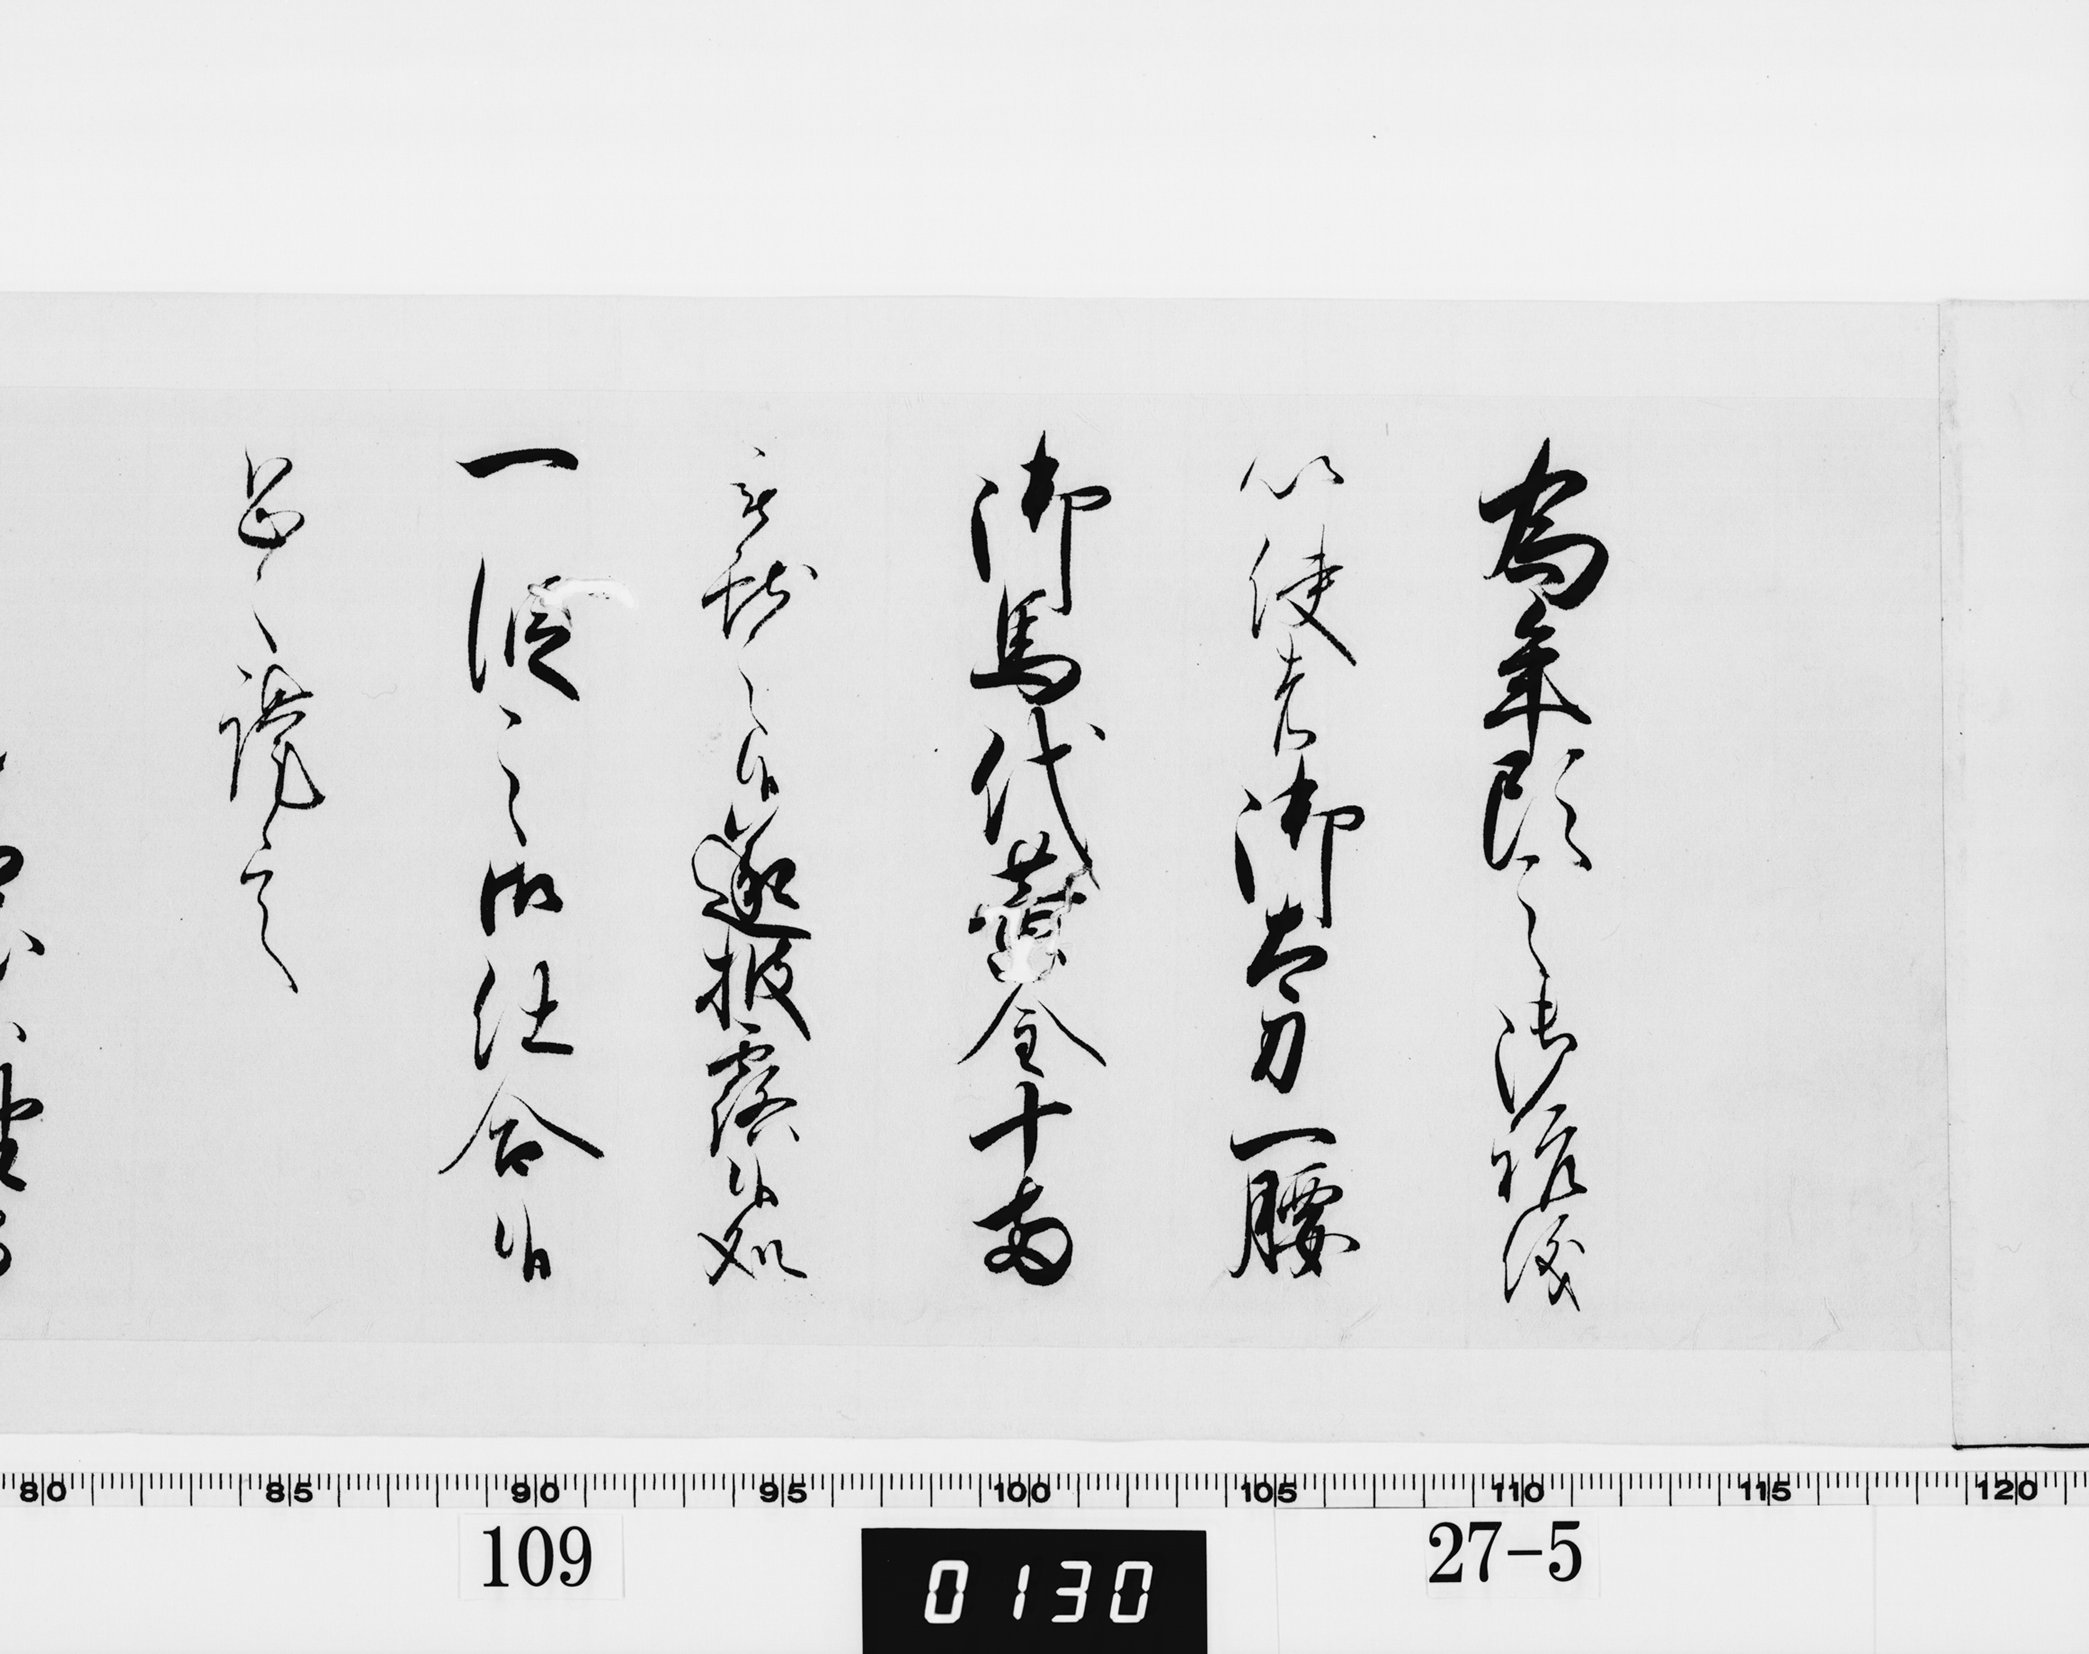 為年頭之御祝儀
以使者御太刀一腰
御馬代黄金十両
被献之候遂披露候処
一段之御仕合候
恐々謹言
80 85 90 95 100 105 110 115 120
109
0130
27-5